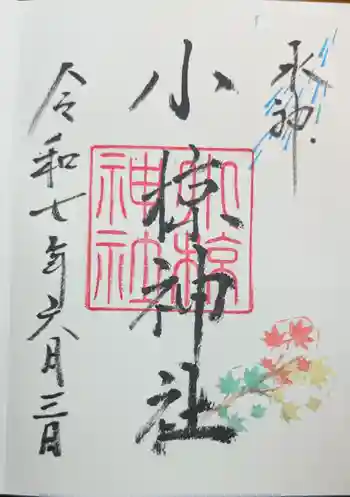 水神
小椋神社
令和七年六月三日
小椋神社